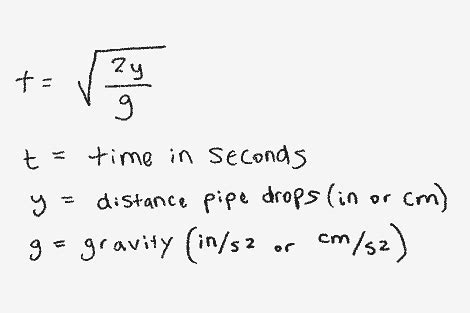 t = √(2y/g)
t = time in seconds
y = distance pipe drops (in or cm)
g = gravity (in/s2 or cm/s2)